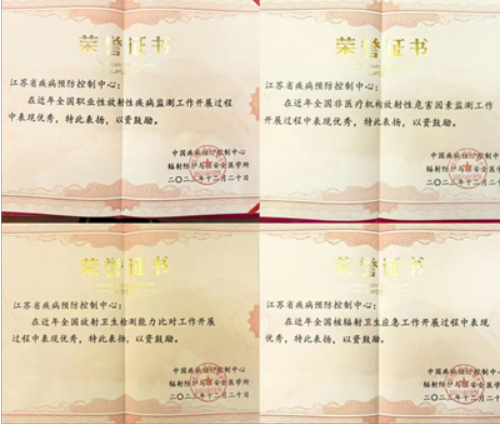 荣誉证书
江苏省疾病预防控制中心：
在近年全国职业性放射性疾病监测工作开展过程
中表现优秀，特此表扬，以资鼓励。
中国疾病预防控制中心
辐射防护与核安全医学所
二〇二二年十二月二十日
荣誉证书
江苏省疾病预防控制中心：
在近年全国非医疗机构放射性危害因素监测工作
开展过程中表现优秀，特此表扬，以资鼓励。
中国疾病预防控制中心
辐射防护与核安全医学所
二〇二二年十二月二十日
荣誉证书
江苏省疾病预防控制中心：
在近年全国放射卫生检测能力比对工作开展
过程中表现优秀，特此表扬，以资鼓励。
中国疾病预防控制中心
辐射防护与核安全医学所
二〇二二年十二月二十日
荣誉证书
江苏省疾病预防控制中心：
在近年全国核辐射卫生应急工作开展过程中表现
优秀，特此表扬，以资鼓励。
中国疾病预防控制中心
辐射防护与核安全医学所
二〇二二年十二月二十